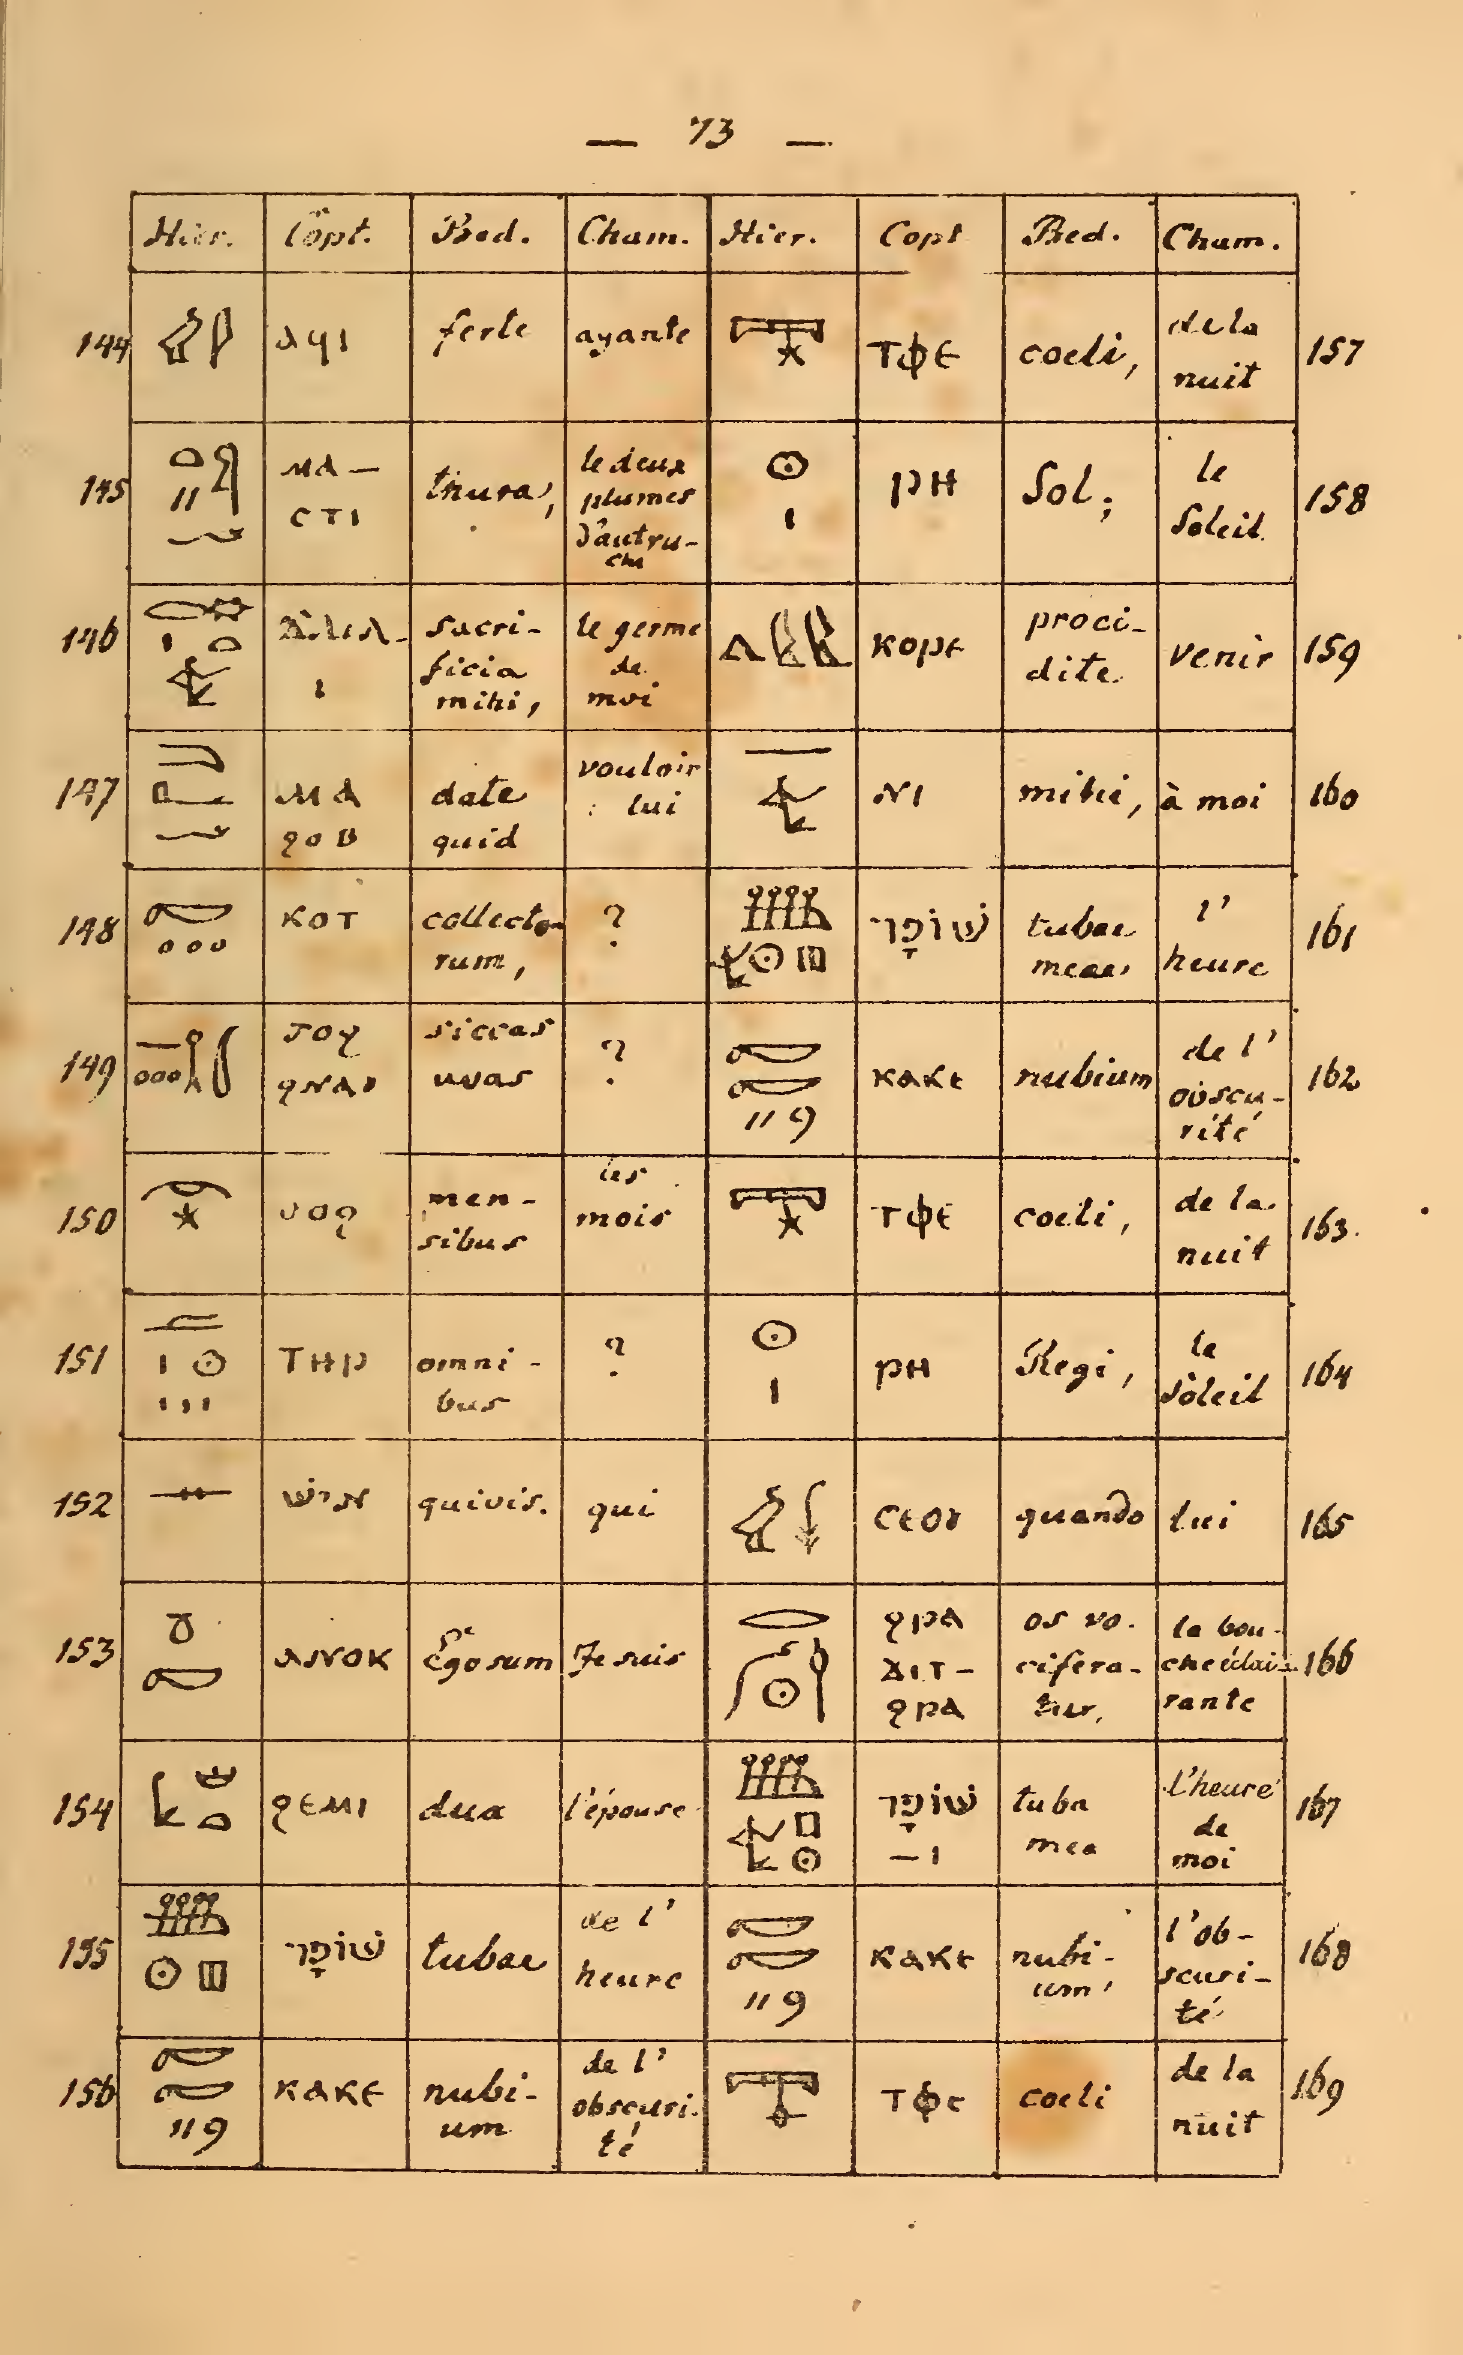 — 73 —
Hier. Copt. Bed. Cham. Hier. Copt Bed. Cham.
144 ⲁϥⲓ ferte ayante ⲧⲫⲉ coeli, de la nuit 157
145 ⲙⲁ— ⲥⲧⲓ thura, le deux plumes d'autru- ⲣⲏ Sol; le Soleil 158
146 sacri- ficia mihi, le germe de moi ⲕⲟⲣⲉ proci- dite venir 159
147 ⲙⲁ ϩⲟⲃ date quid vouloir lui ⲛⲓ mihi, à moi 160
148 ⲕⲟⲧ collecto- rum, ? שׁוֹפָר tubae meae, l' heure 161
149 siccas uvas ? ⲕⲁⲕⲉ nubium de l' obscu- rité 162
150 men- sibus les mois ⲧⲫⲉ coeli, de la nuit 163.
151 ⲧⲏⲣ omni- bus ? ⲣⲏ Regi, le soleil 164
152 אישׁ quivis. qui ⲥⲉⲟⲩ quando lui 165
153 ⲁⲛⲟⲕ Ego sum Je suis ϩⲣⲁ ϫⲓⲧ- ϩⲣⲁ os vo- cifera- tur, la bou- che éclai- rante 166
154 ϩⲉⲙⲓ dux l'épouse שׁוֹפָר — ⲓ tuba mea l'heure de moi 167
155 שׁוֹפָר tubae de l' heure ⲕⲁⲕⲉ nubi- um, l'ob- scuri- té 168
156 ⲕⲁⲕⲉ nubi- um de l' obscuri- té ⲧⲫⲉ coeli de la nuit 169